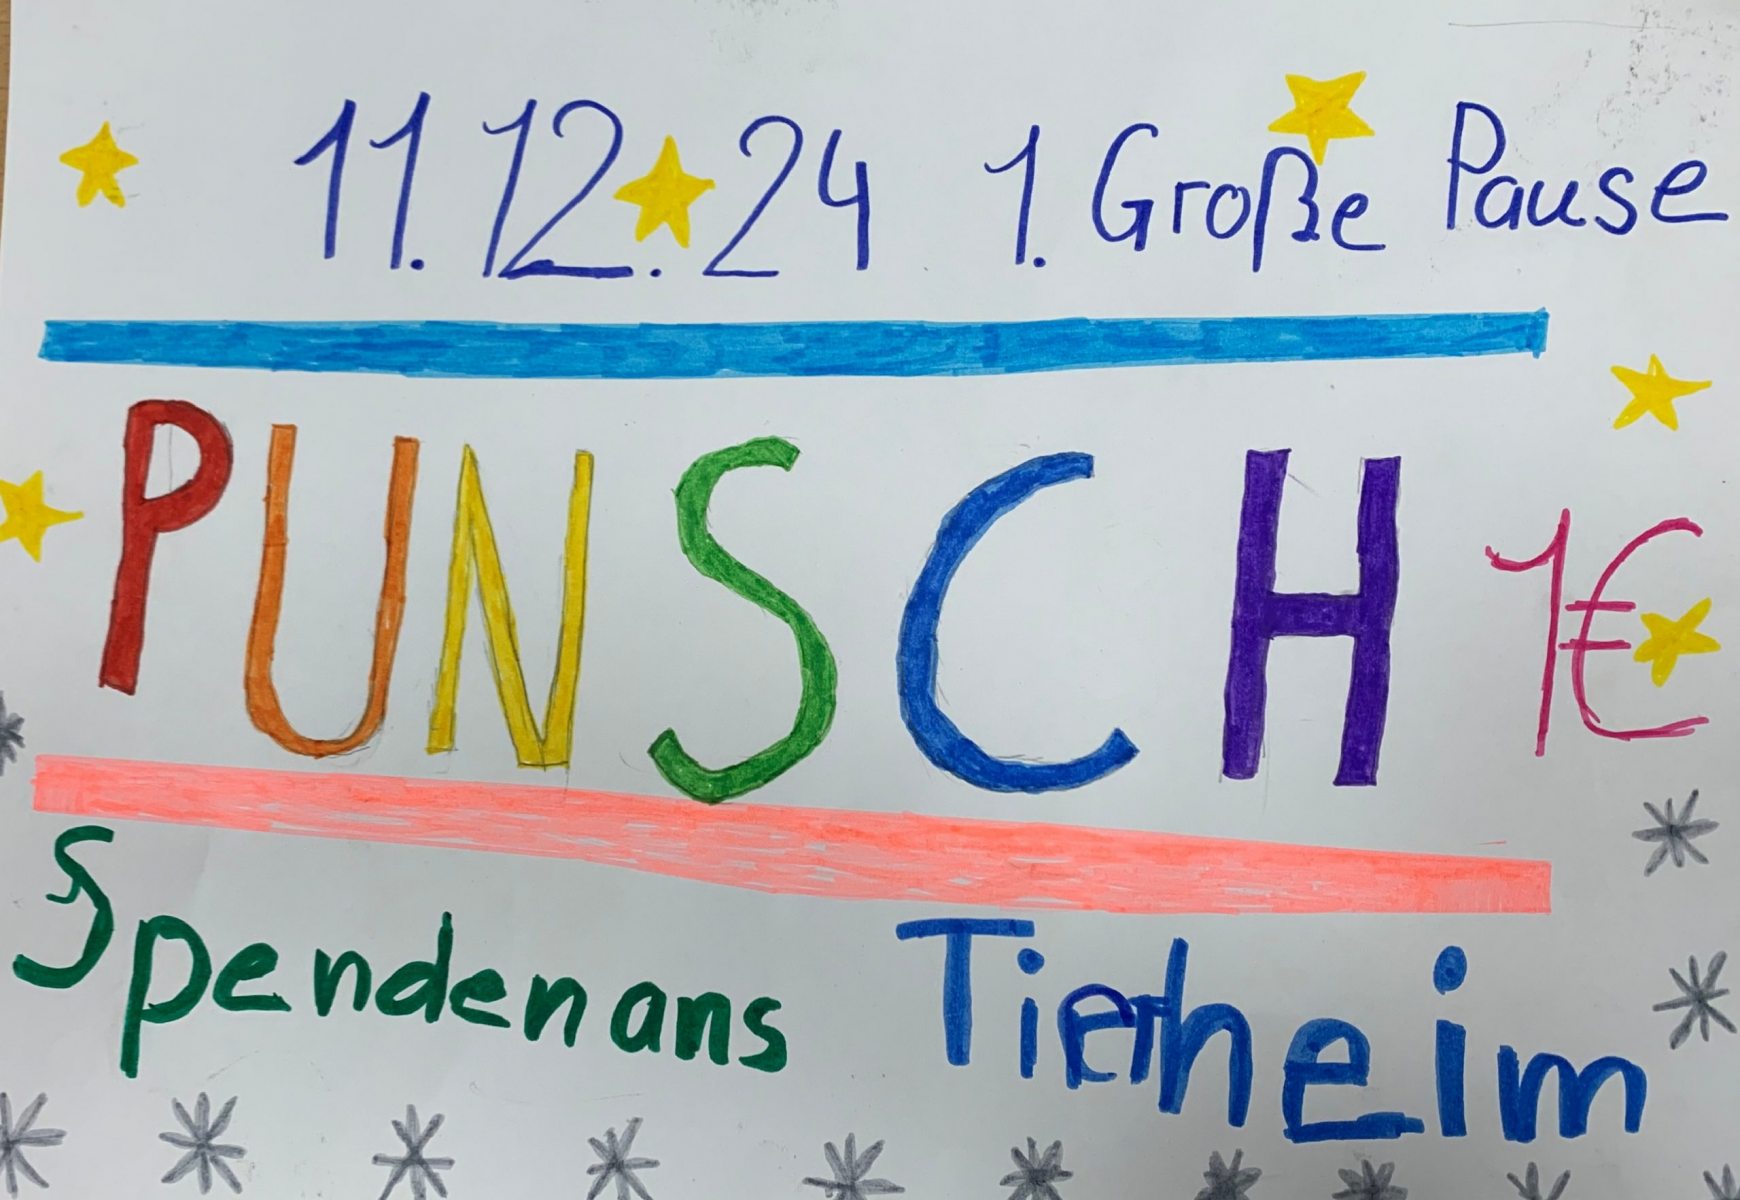 11.12.24 1. Große Pause
PUNSCH 1€
Spenden ans Tierheim